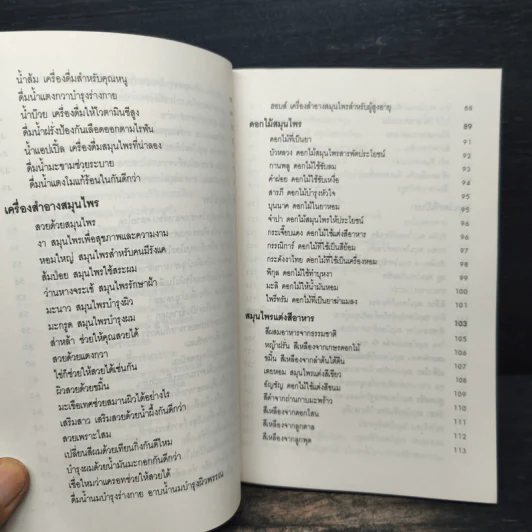 น้ำส้ม เครื่องดื่มสำหรับคุณหนู
ดื่มน้ำแตงกวาบำรุงร่างกาย
น้ำป๋วย เครื่องดื่มให้ไวตามินซีสูง
ดื่มน้ำฝรั่งป้องกันเลือดออกตามไรฟัน
น้ำแอปเปิ้ล เครื่องดื่มสมุนไพรที่น่าลอง
ดื่มน้ำมะขามช่วยระบาย
ดื่มน้ำแตงโมแก้ร้อนในกันดีกว่า
เครื่องสำอางสมุนไพร
สวยด้วยสมุนไพร
งา สมุนไพรเพื่อสุขภาพและความงาม
หอมใหญ่ สมุนไพรสำหรับคนมีรังแค
ส้มป่อย สมุนไพรใช้สระผม
ว่านหางจระเข้ สมุนไพรรักษาฝ้า
มะนาว สมุนไพรบำรุงผิว
มะกรูด สมุนไพรบำรุงผม
ส่าเหล้า ช่วยให้คุณสวยได้
สวยด้วยแตงกวา
ไข่ก็ช่วยให้สวยได้เช่นกัน
ผิวสวยด้วยขมิ้น
มะเขือเทศช่วยสมานผิวได้อย่างไร
เสริมสาว เสริมสวยด้วยน้ำผึ้งกันดีกว่า
สวยเพราะโสม
เปลี่ยนสีผมด้วยเทียนกิ่งกันดีไหม
บำรุงผมด้วยน้ำมันมะกอกกันดีกว่า
เชื่อไหมว่าแครอทช่วยให้สวยได้
ดื่มน้ำนมบำรุงร่างกาย อาบน้ำนมบำรุงผิวพรรณ
สอบส์ เครื่องสำอางสมุนไพรสำหรับผู้สูงอายุ 88
ดอกไม้สมุนไพร 89
ดอกไม้ที่เป็นยา 91
บัวหลวง ดอกไม้สมุนไพรสารพัดประโยชน์ 92
กานพลู ดอกไม้ใช้ขับลม 93
คำฝอย ดอกไม้ใช้ขับเหงื่อ 93
สารภี ดอกไม้บำรุงหัวใจ 94
บุนนาค ดอกไม้ในยาหอม 95
จำปา ดอกไม้สมุนไพรให้ประโยชน์ 95
กระเจี๊ยบแดง ดอกไม้ใช้แต่งสีอาหาร 96
กรรณิการ์ ดอกไม้ที่ใช้เป็นสีย้อม 98
กระดังงาไทย ดอกไม้ที่ใช้เป็นเครื่องหอม 98
พิกุล ดอกไม้ที่ใช้ทำบุหงา 99
มะลิ ดอกไม้ให้น้ำมันหอม 100
ไพรีทรัม ดอกไม้ที่เป็นยาฆ่าแมลง 101
สมุนไพรแต่งสีอาหาร 103
สีผสมอาหารจากธรรมชาติ 105
หญ้าฝรั่น สีเหลืองจากเกษรดอกไม้ 107
ขมิ้น สีเหลืองจากลำต้นใต้ดิน 108
เตยหอม สมุนไพรแต่งสีเขียว 109
อัญชัญ ดอกไม้ใช้แต่งสีขนม 110
สีดำจากถ่านกาบมะพร้าว 111
สีเหลืองจากดอกโสน 112
สีเหลืองจากลูกตาล 113
สีเหลืองจากลูกพุด 113